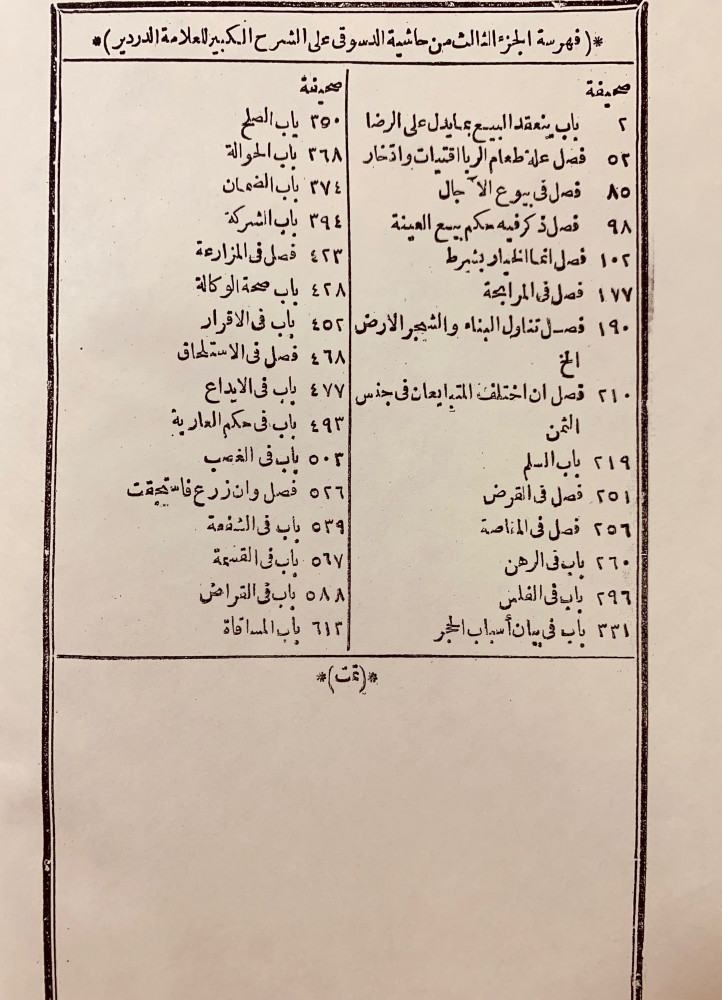 *(فهرسة الجزء الثالث من حاشية الدسوقى على الشرح الكبير للعلامة الدردير)*
صحيفة
٢ باب ينعقد البيع بما يدل على الرضا
٥٢ فصل علة طعام الربا اقتيات وادخار
٨٥ فصل فى بيوع الآجال
٩٨ فصل ذكر فيه حكم بيع العينة
١٠٢ فصل انما الخيار بشرط
١٧٧ فصل فى المرابحة
١٩٠ فصل تناول البناء والشجر الارض
الخ
٢١٠ فصل ان اختلف المتبايعان فى جنس
الثمن
٢١٩ باب السلم
٢٥١ فصل فى القرض
٢٥٦ فصل فى المقاصة
٢٦٠ باب فى الرهن
٢٩٦ باب فى الفلس
٣٣١ باب فى بيان أسباب الحجر
صحيفة
٣٥٠ باب الصلح
٣٦٨ باب الحوالة
٣٧٤ باب الضمان
٣٩٤ باب الشركة
٤٢٣ فصل فى المزارعة
٤٢٨ باب صحة الوكالة
٤٥٢ باب فى الاقرار
٤٦٨ فصل فى الاستلحاق
٤٧٧ باب فى الايداع
٤٩٣ باب فى حكم العارية
٥٠٣ باب فى الغصب
٥٢٦ فصل وان زرع فاستحقت
٥٣٩ باب فى الشفعة
٥٦٧ باب فى القسمة
٥٨٨ باب فى القراض
٦١٢ باب المساقاة
*(تمت)*